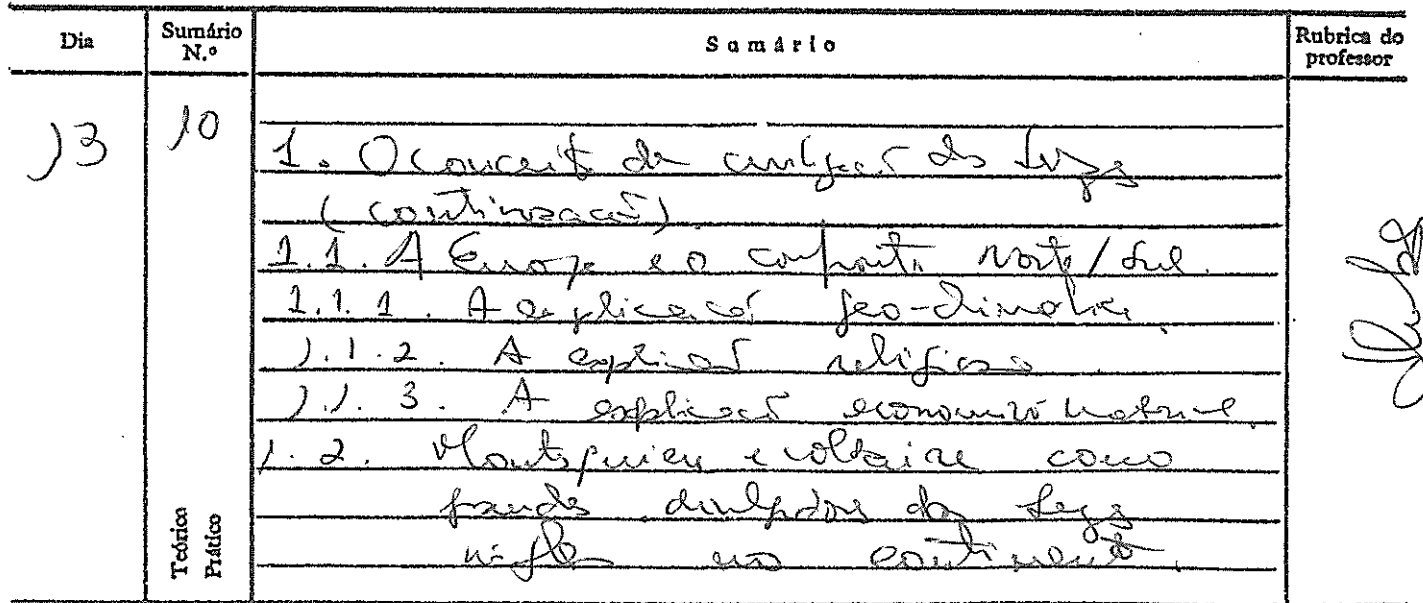 Dia Sumário N.º Sumário Rubrica do professor
13 10
1. O conceito de civilização das Luzes
(continuação).
1.1. A Europa e o confronto Norte/Sul.
1.1.1. A explicação geo-climática.
1.1.2. A explicação religiosa.
1.1.3. A explicação económico
1.2. Montesquieu e Voltaire como
grandes divulgadores das Luzes
no continente.
Teórico
Prático